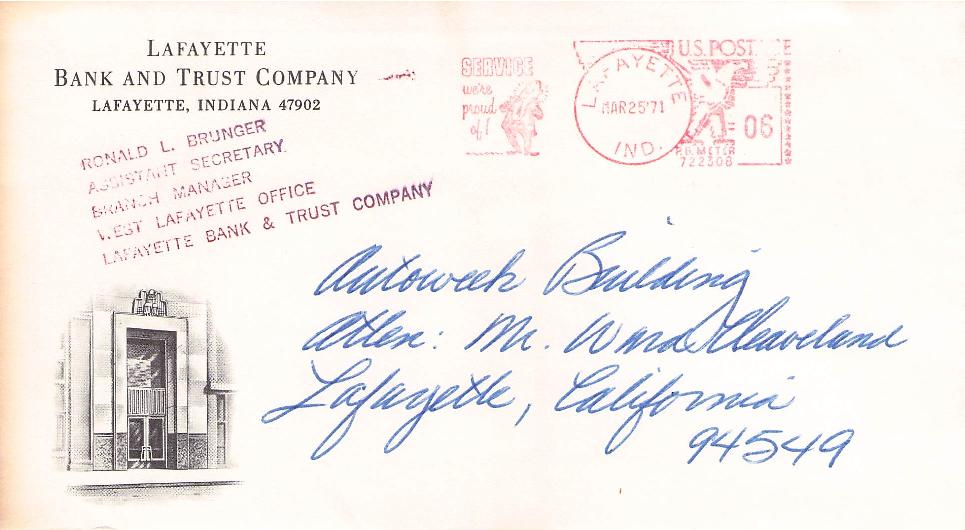 LAFAYETTE
BANK AND TRUST COMPANY
LAFAYETTE, INDIANA 47902
RONALD L. BRUNGER
ASSISTANT SECRETARY
BRANCH MANAGER
WEST LAFAYETTE OFFICE
LAFAYETTE BANK & TRUST COMPANY
SERVICE
we're
proud
of!
LAFAYETTE
MAR25'71
IND.
U.S. POSTAGE
06
P.B. METER
722308
Autoweek Building
Atten: Mr. Ward Cleaveland
Lafayette, California
94549